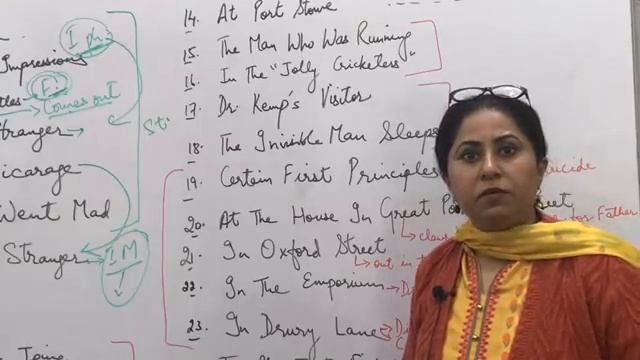 I ph.
Impressions
Fi
Comes out
Stranger
icarage
Went Mad
Stranger
I M
St.
14. At Port Stowe
15. The Man Who Was Running
16. In the "Jolly Cricketers"
17. Dr. Kemp's Visitor
18. The Invisible Man Sleeps
19. Certain First Principles
20. At The House In Great Po
21. In Oxford Street
22. In The Emporium
23. In Drury Lane
eet
for Father
out in